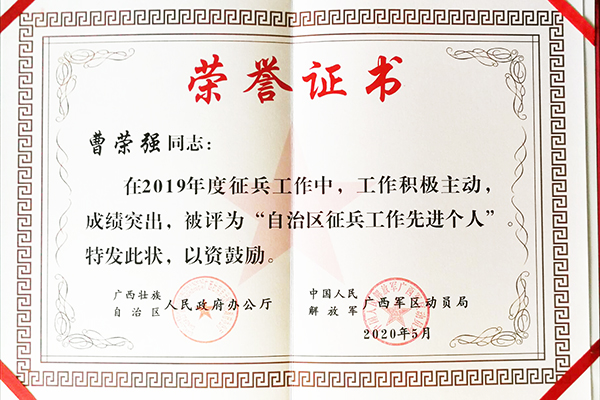 荣誉证书
曹荣强同志：
在2019年度征兵工作中，工作积极主动，
成绩突出，被评为“自治区征兵工作先进个人”。
特发此状，以资鼓励。
广西壮族自治区 人民政府办公厅
中国人民解放军 广西军区动员局
2020年5月